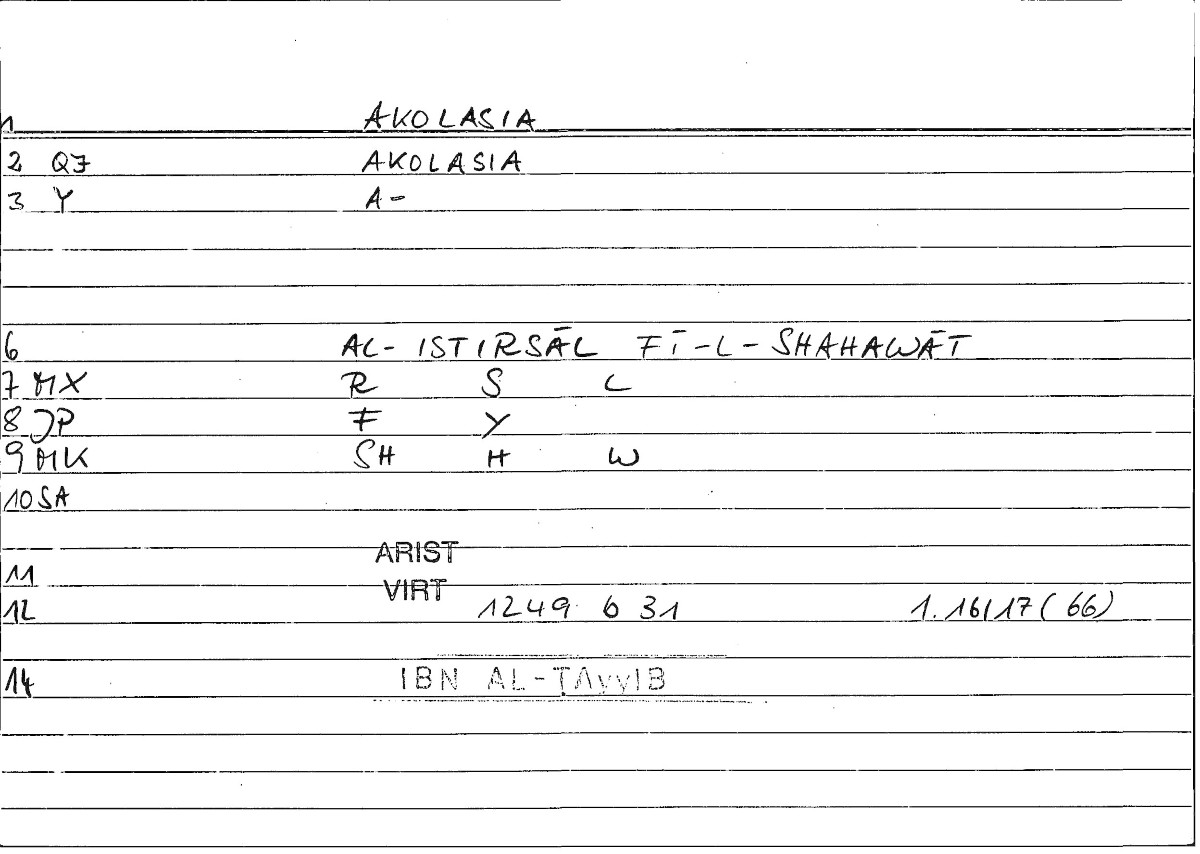 1 AKOLASIA
2 QJ AKOLASIA
3 Y A-
6 AL-ISTIRSĀL FĪ-L-SHAHAWĀT
7 MX R S L
8 JP F Y
9 MK SH H W
10 SA
ARIST
11
VIRT
12 1249 b 31 1.16/17 (66)
14 IBN AL-ṬAyyIB